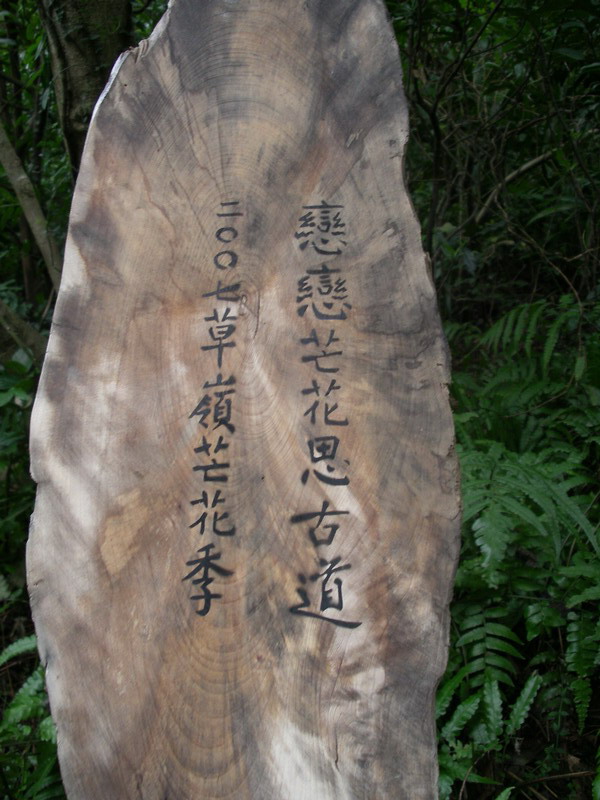 戀戀芒花思古道
二〇〇七草嶺芒花季